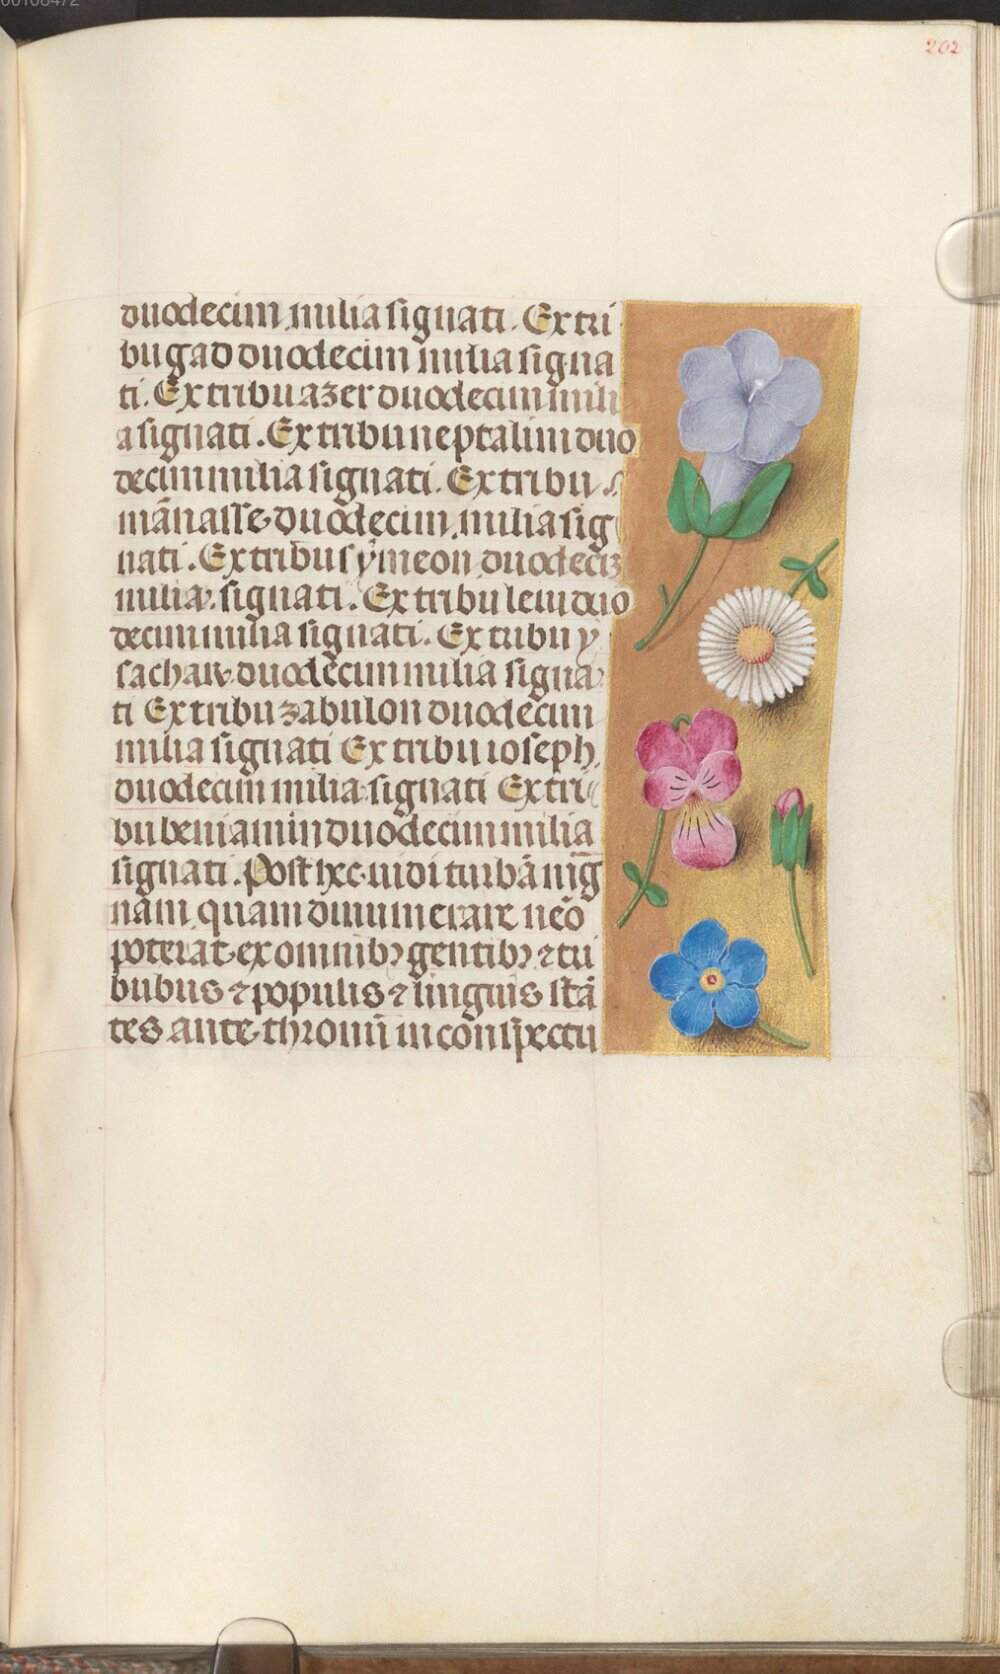 00108472
202
duodecim milia signati. Ex tri
bu gad duodecim milia signa
ti. Ex tribu azer duodecim mili
a signati. Ex tribu neptalim duo
decim milia signati. Ex tribu
mānasse duodecim milia sig
nati. Ex tribu sẏmeon duodeciz
milia signati. Ex tribu leui duo
decim milia signati. Ex tribu y
sachar duodecim milia signa
ti Ex tribu zabulon duodecim
milia signati Ex tribu ioseph
duodecim milia signati Ex tri
bu beniamin duodecim milia
signati. Post hec uidi turbā mag
nam quam dinumerare nēo
poterat ex omnibꝰ gentibꝰ ⁊ tri
bubus ⁊ populis ⁊ linguis stā
tes ante thronū in cōnspectu